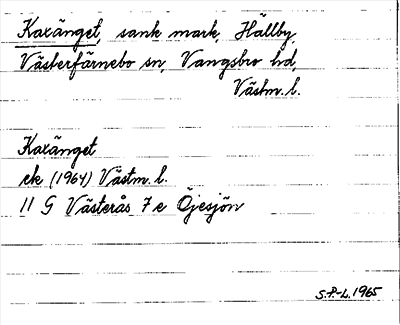 Kaxänget, sank mark, Hällby,
Västerfärnebo sn, Vangsbro hd,
Västm. l.
Kaxänget
ek (1964) Västm. l.
11 G Västerås 7 e Öjesjön
S.P.-L. 1965